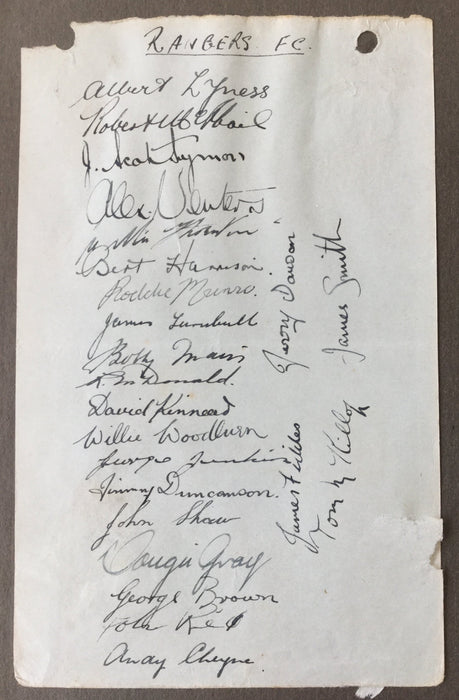 RANGERS FC.
Albert Lyness
Robert McPhail
J. Scot Symon
Alex. Venters
Willie Thornton
Bert Harrison.
Roddie Munro.
James Turnbull
Bobby Main
K. McDonald.
David Kinnear
Willie Woodburn
George Jenkins
Jimmy Duncanson.
John Shaw
Dougie Gray
George Brown
Andy Cheyne.
Jerry Dawson
James Smith
James Fiddes
Tom McKillop